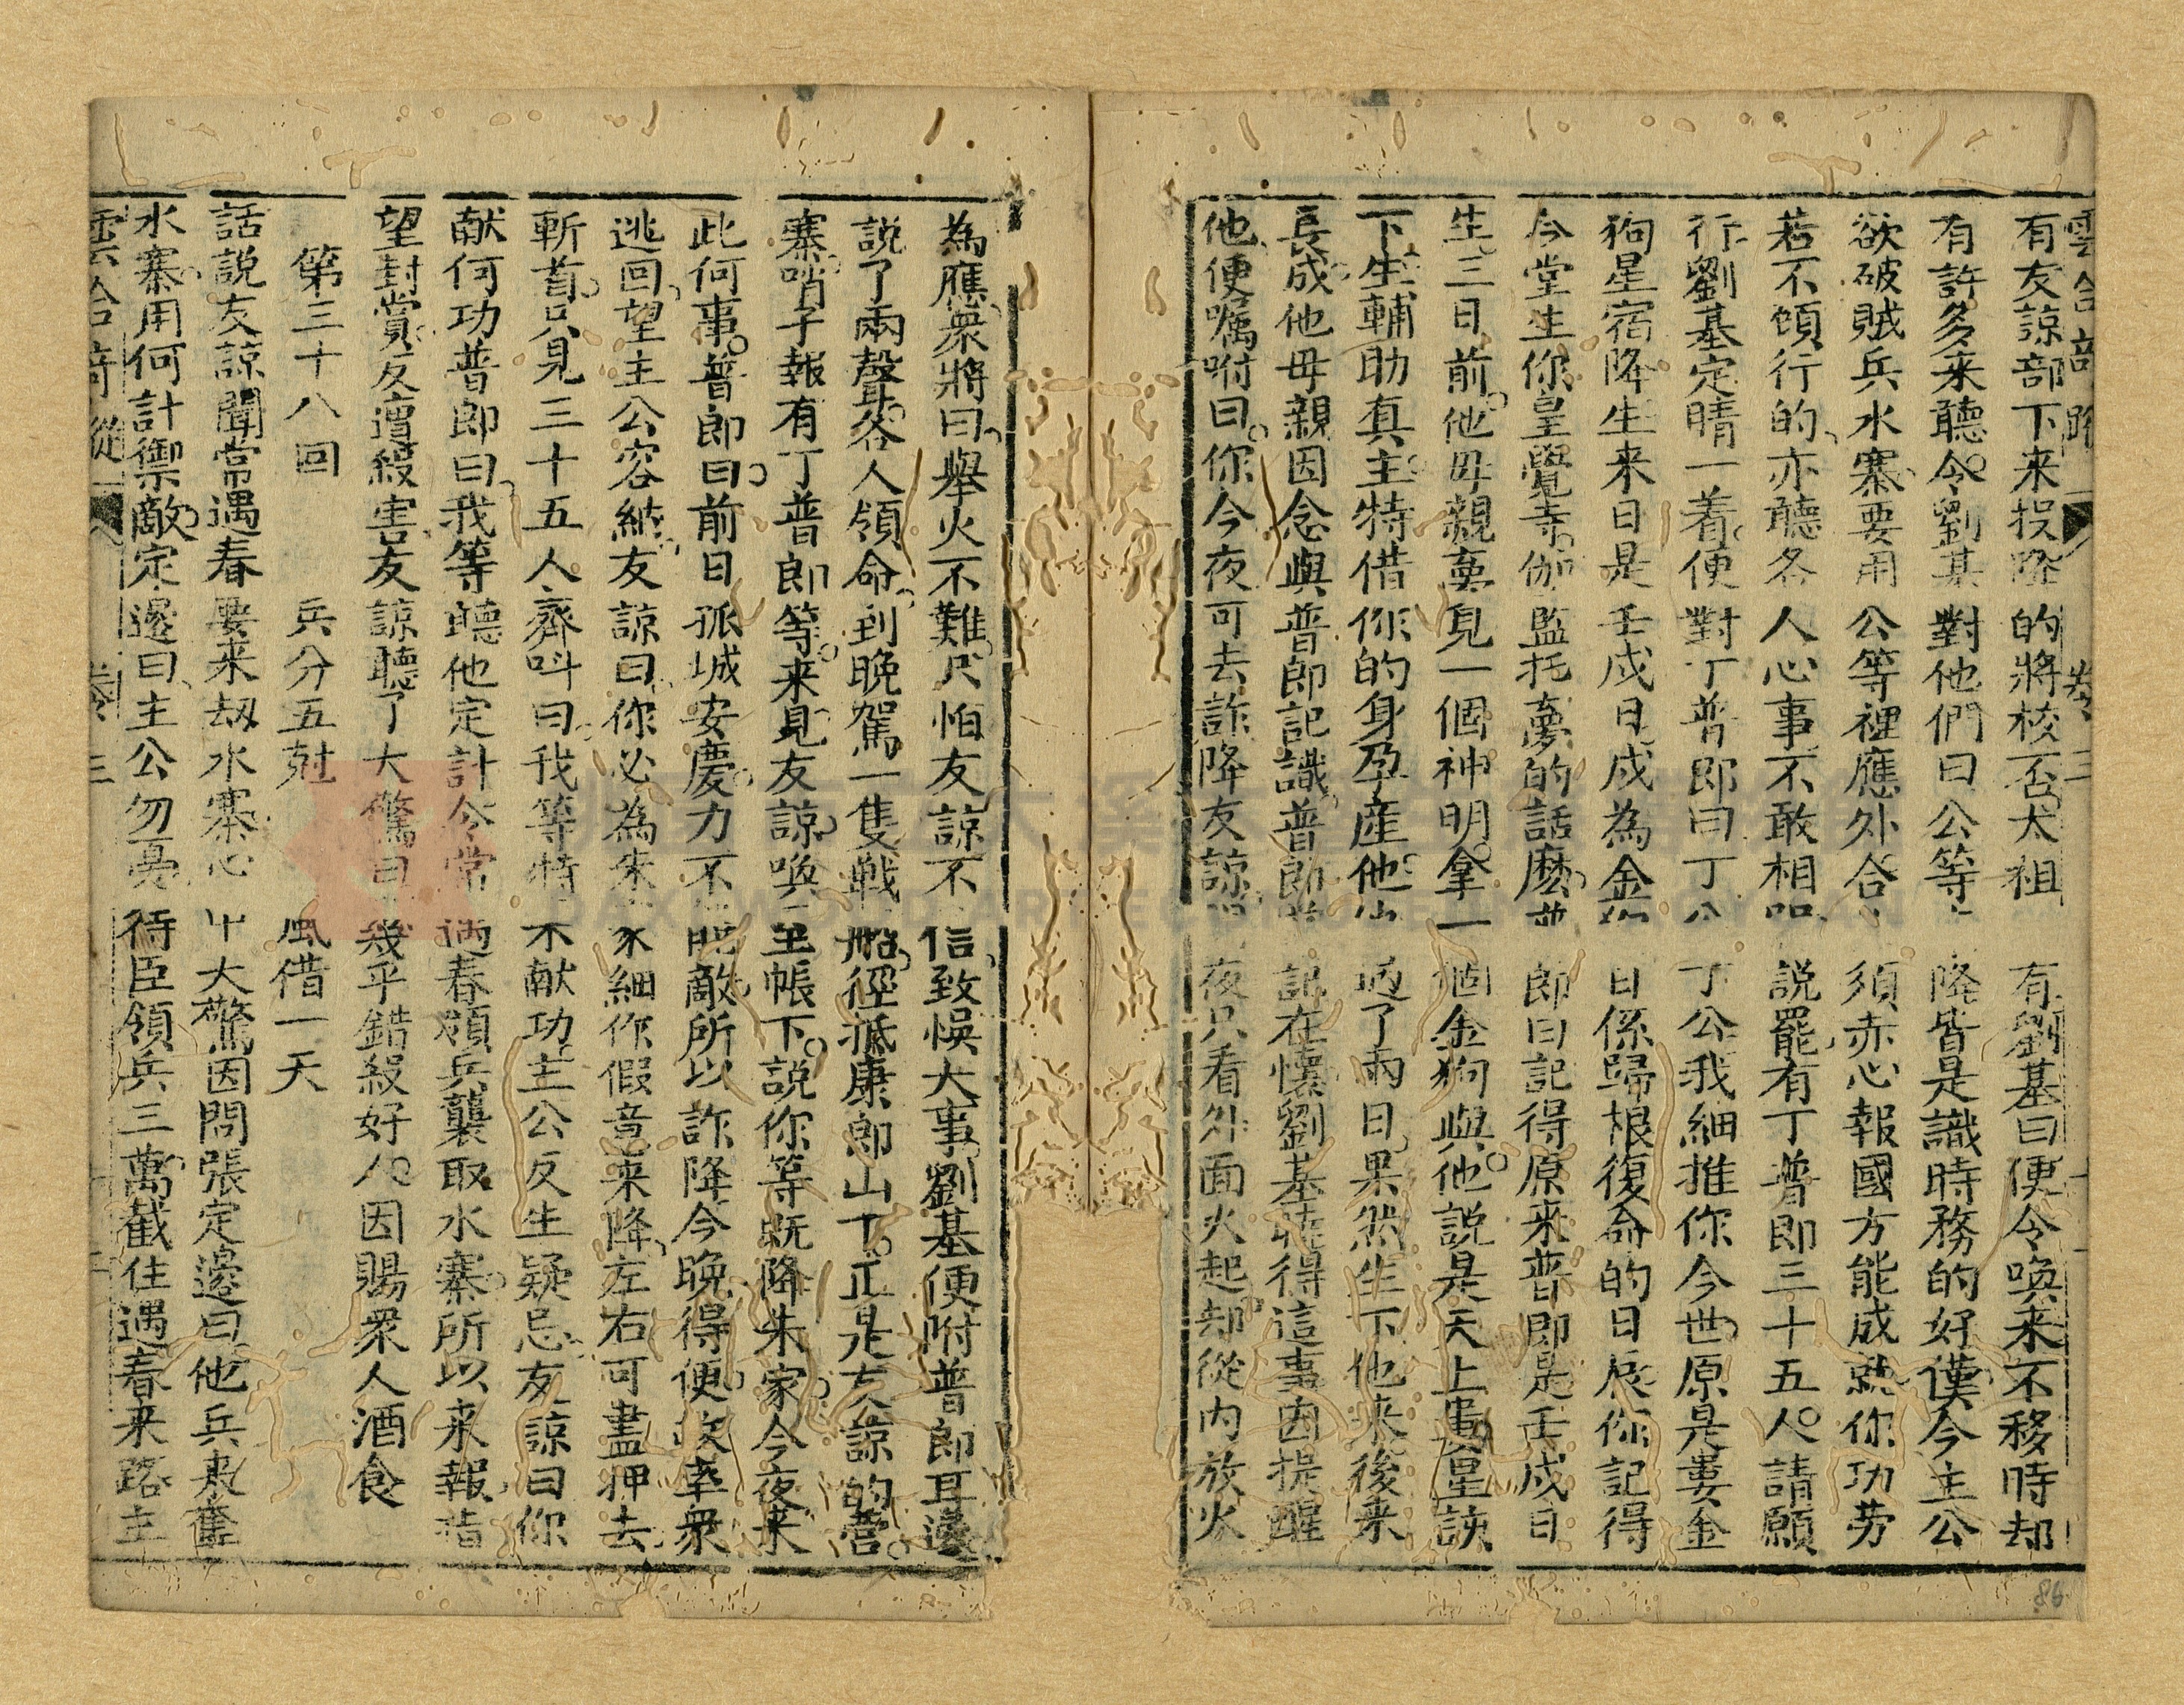 有友諒部下来投降的將校否太祖有劉基曰便令喚来不移時却
有許多来聽令劉基對他們曰公等降皆是識時務的好漢今主公
欲破賊兵水寨要用公等裡應外合須赤心報國方能成就你功劳
若不願行的亦聽各人心事不敢相説罷有丁普郎三十五人請願
行劉基定睛一着便對丁普郎曰丁公丁公我細推你今世原是婁金
狗星宿降生来日是壬戌日戌為金狗日係歸根復命的日辰你記得
今堂生你皇覺寺伽監托夢的話麽普郎曰記得原来普郎是壬戌日
生三日前他毋親夢見一個神明拿一個金狗與他説是天上婁星該
下生輔助真主特借你的身孕産他過了兩日果然生下他来後来
長成他毋親因念與普郎記識普郎記在懷劉基聽得這事因提醒
他便嘱咐曰你今夜可去詐降友諒夜只看外面火起却從内放火
為應衆將曰舉火不難只怕友諒不信致悮大事劉基便附普郎耳邊
説了兩聲各人領命到晩駕一隻戦船徑抵康郎山下正是友諒的營
寨哨子報有丁普郎等来見友諒喚至帳下説你等既降朱家今夜来
此何事普郎曰前日孤城安慶力不能敵所以詐降今晩得便故率衆
逃回望主公容納友諒曰你必為朱家細作假意来降左右可盡押去
斬首只見三十五人齊呌曰我等特来献功主公反生疑忌友諒曰你
献何功普郎曰我等聽他定計令常遇春領兵襲取水寨所以来報指
望封賞反遭殺害友諒聽了大驚曰幾乎錯殺好人因賜衆人酒食
第三十八回　兵分五尅　風借一天
話説友諒聞常遇春要来刼水寨心中大驚因問張定邊曰他兵来奪
水寨用何計禦敵定邊曰主公勿憂待臣領兵三萬截住遇春来路主